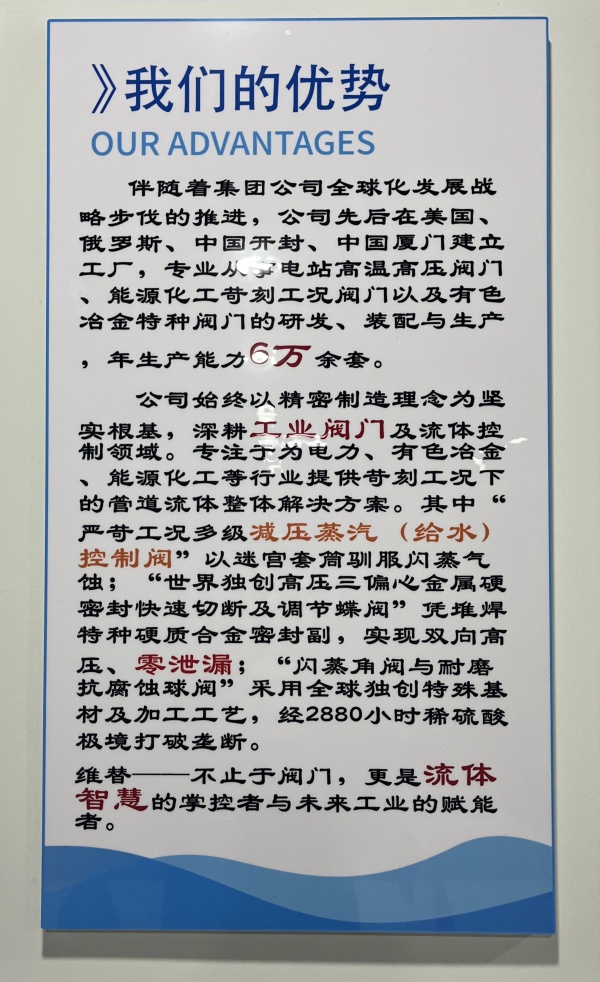 》我们的优势
OUR ADVANTAGES
伴随着集团公司全球化发展战
略步伐的推进，公司先后在美国、
俄罗斯、中国开封、中国厦门建立
工厂，专业从事电站高温高压阀门
、能源化工苛刻工况阀门以及有色
冶金特种阀门的研发、装配与生产
，年生产能力6万余套。
公司始终以精密制造理念为坚
实根基，深耕工业阀门及流体控
制领域。专注于为电力、有色冶金
、能源化工等行业提供苛刻工况下
的管道流体整体解决方案。其中“
严苛工况多级减压蒸汽（给水）
控制阀”以迷宫套筒驯服闪蒸气
蚀；“世界独创高压三偏心金属硬
密封快速切断及调节蝶阀”凭堆焊
特种硬质合金密封副，实现双向高
压、零泄漏；“闪蒸角阀与耐磨
抗腐蚀球阀”采用全球独创特殊基
材及加工工艺，经2880小时稀硫酸
极境打破垄断。
维替——不止于阀门，更是流体
智慧的掌控者与未来工业的赋能
者。